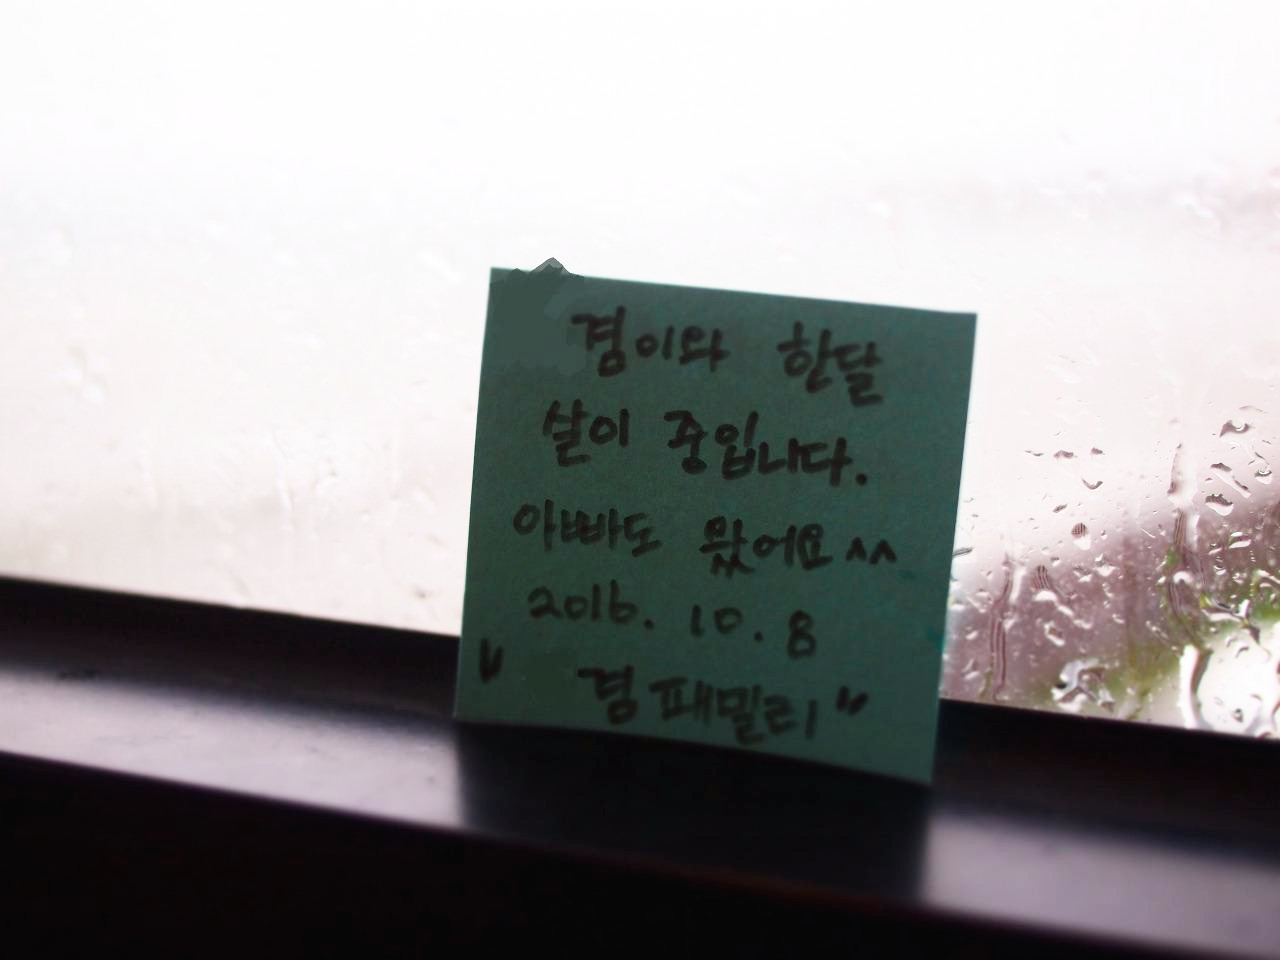 경이와 한달
살이 중입니다.
아빠도 왔어요^^
2016. 10. 8
" 경패밀리"